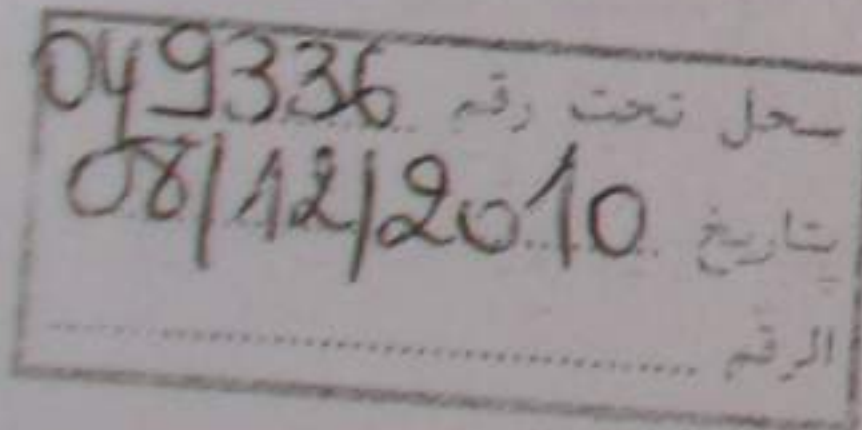 سجل تحت رقم 049336
بتاريخ 08/12/2010
الرقم